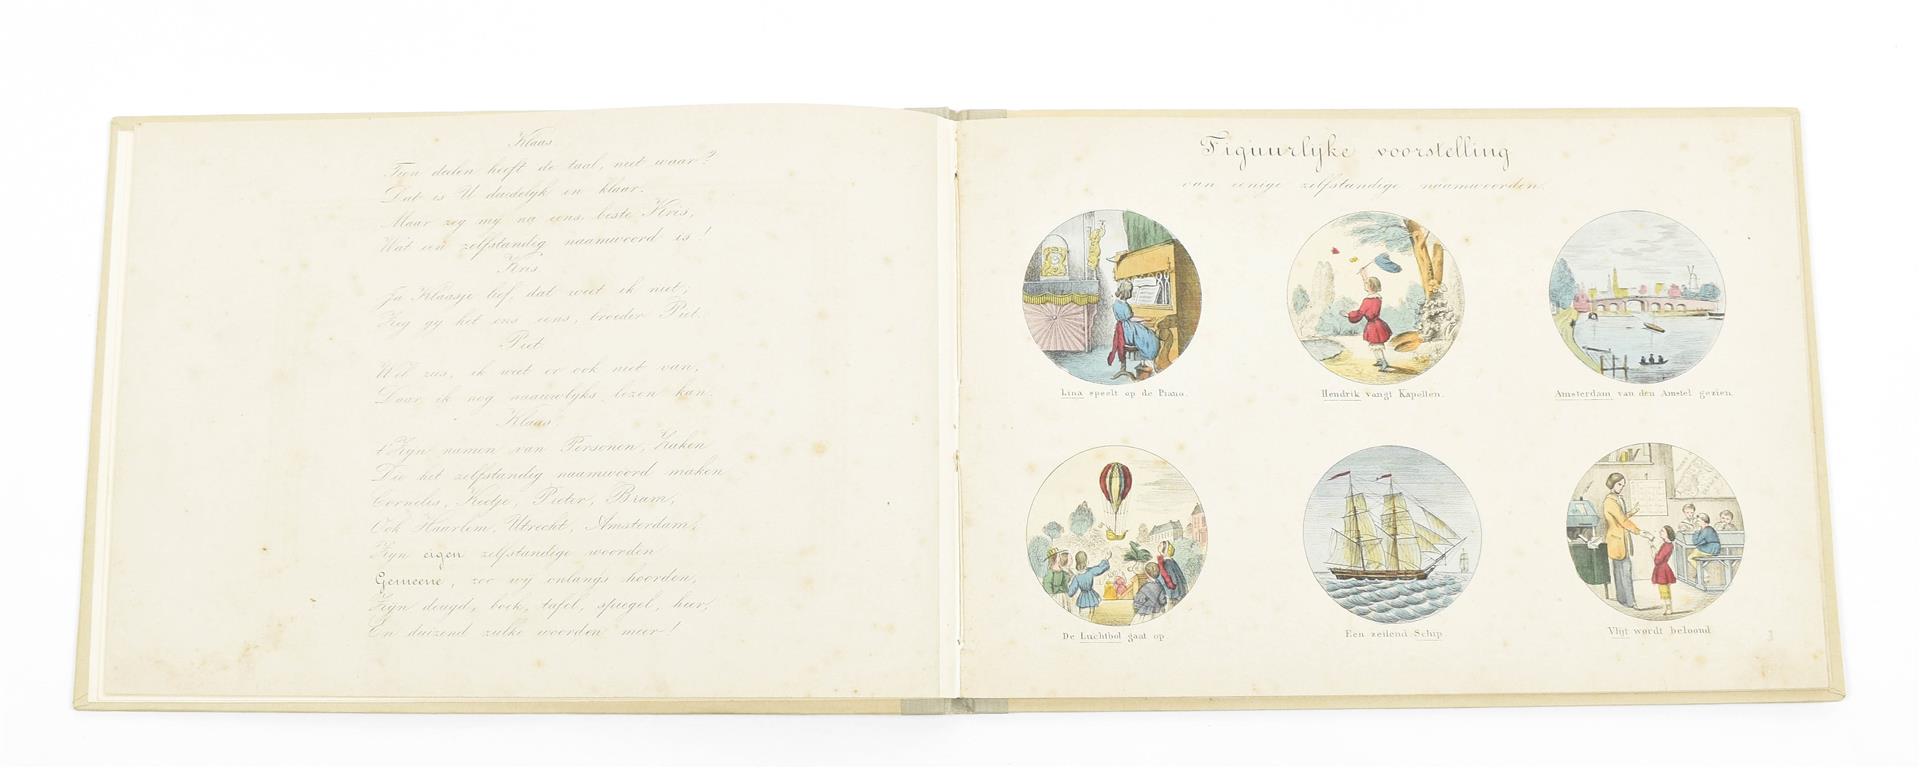 Klaas.
Tien deelen heeft de taal, niet waar?
Dat is U duidelyk en klaar.
Maar zeg my nu eens, beste Kris,
Wat een zelfstandig naamwoord is!
Kris
Ja Klaasje lief, dat weet ik niet;
Zeg gy het ons eens, broeder Piet.
Piet.
Wel zus, ik weet er ook niet van,
Daar ik nog naauwlyks lezen kan.
Klaas.
t'Zyn namen van Personen, Zaken
Die het zelfstandig naamwoord maken
Cornelis, Keetje, Pieter, Bram,
Ook Haarlem, Utrecht, Amsterdam,
Zyn eigen zelfstandige woorden
Gemeene, zoo wy onlangs hoorden,
Zyn deugd, boek, tafel, spiegel, hier,
En duizend zulke woorden meer!
Figuurlyke voorstelling
van eenige zelfstandige naamwoorden.
Lina speelt op de Piano.
Hendrik vangt Kapellen.
Amsterdam van den Amstel gezien.
De Luchtbol gaat op
Een zeilend Schip
Vlijt wordt beloond